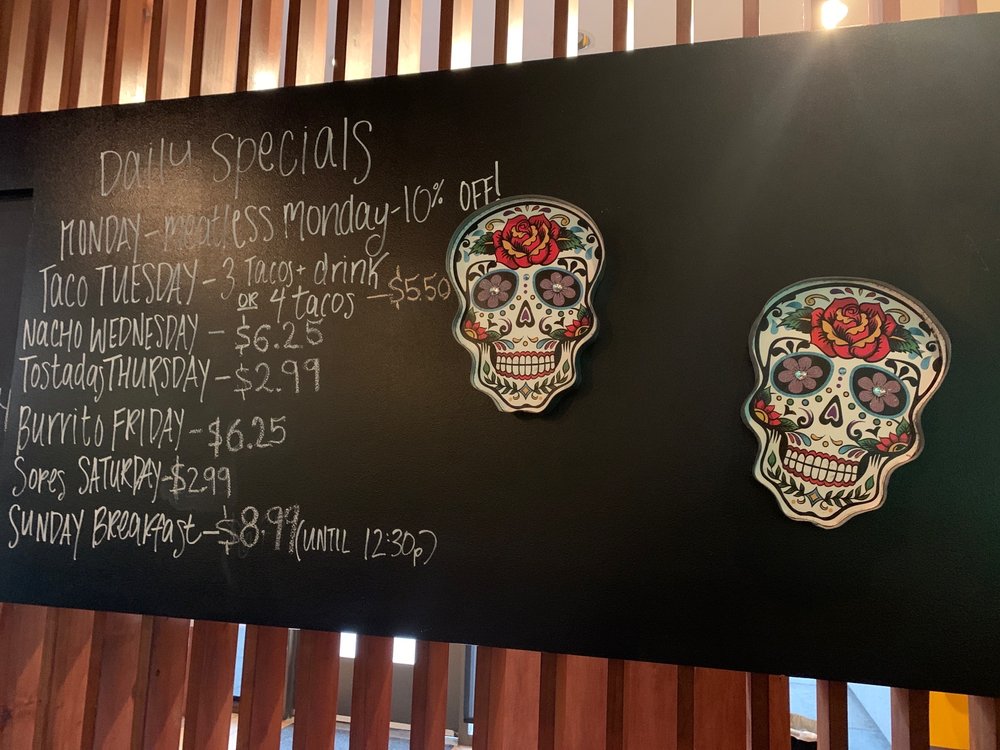 Daily Specials
MONDAY - meatless monday - 10% OFF!
Taco TUESDAY - 3 Tacos + drink
OR 4 tacos - $5.50
NACHO WEDNESDAY - $6.25
Tostadas THURSDAY - $2.99
Burrito FRIDAY - $6.25
Sopes SATURDAY - $2.99
SUNDAY Breakfast - $8.99 (UNTIL 12:30p)